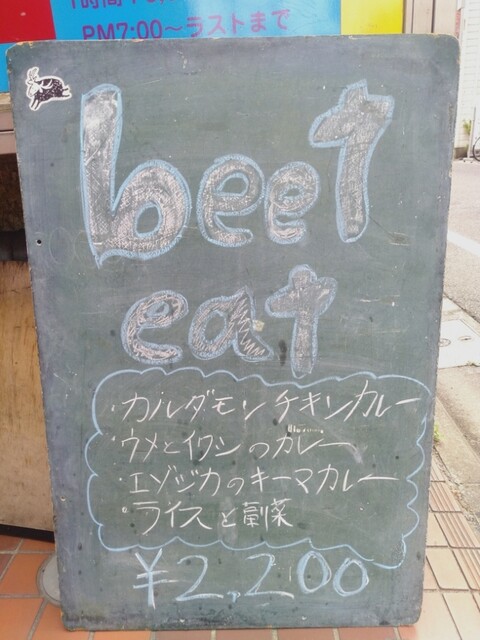 PM7:00〜ラストまで
beet
eat
・カルダモンチキンカレー
・ウメとイワシのカレー
・エゾジカのキーマカレー
・ライスと副菜
¥2,200